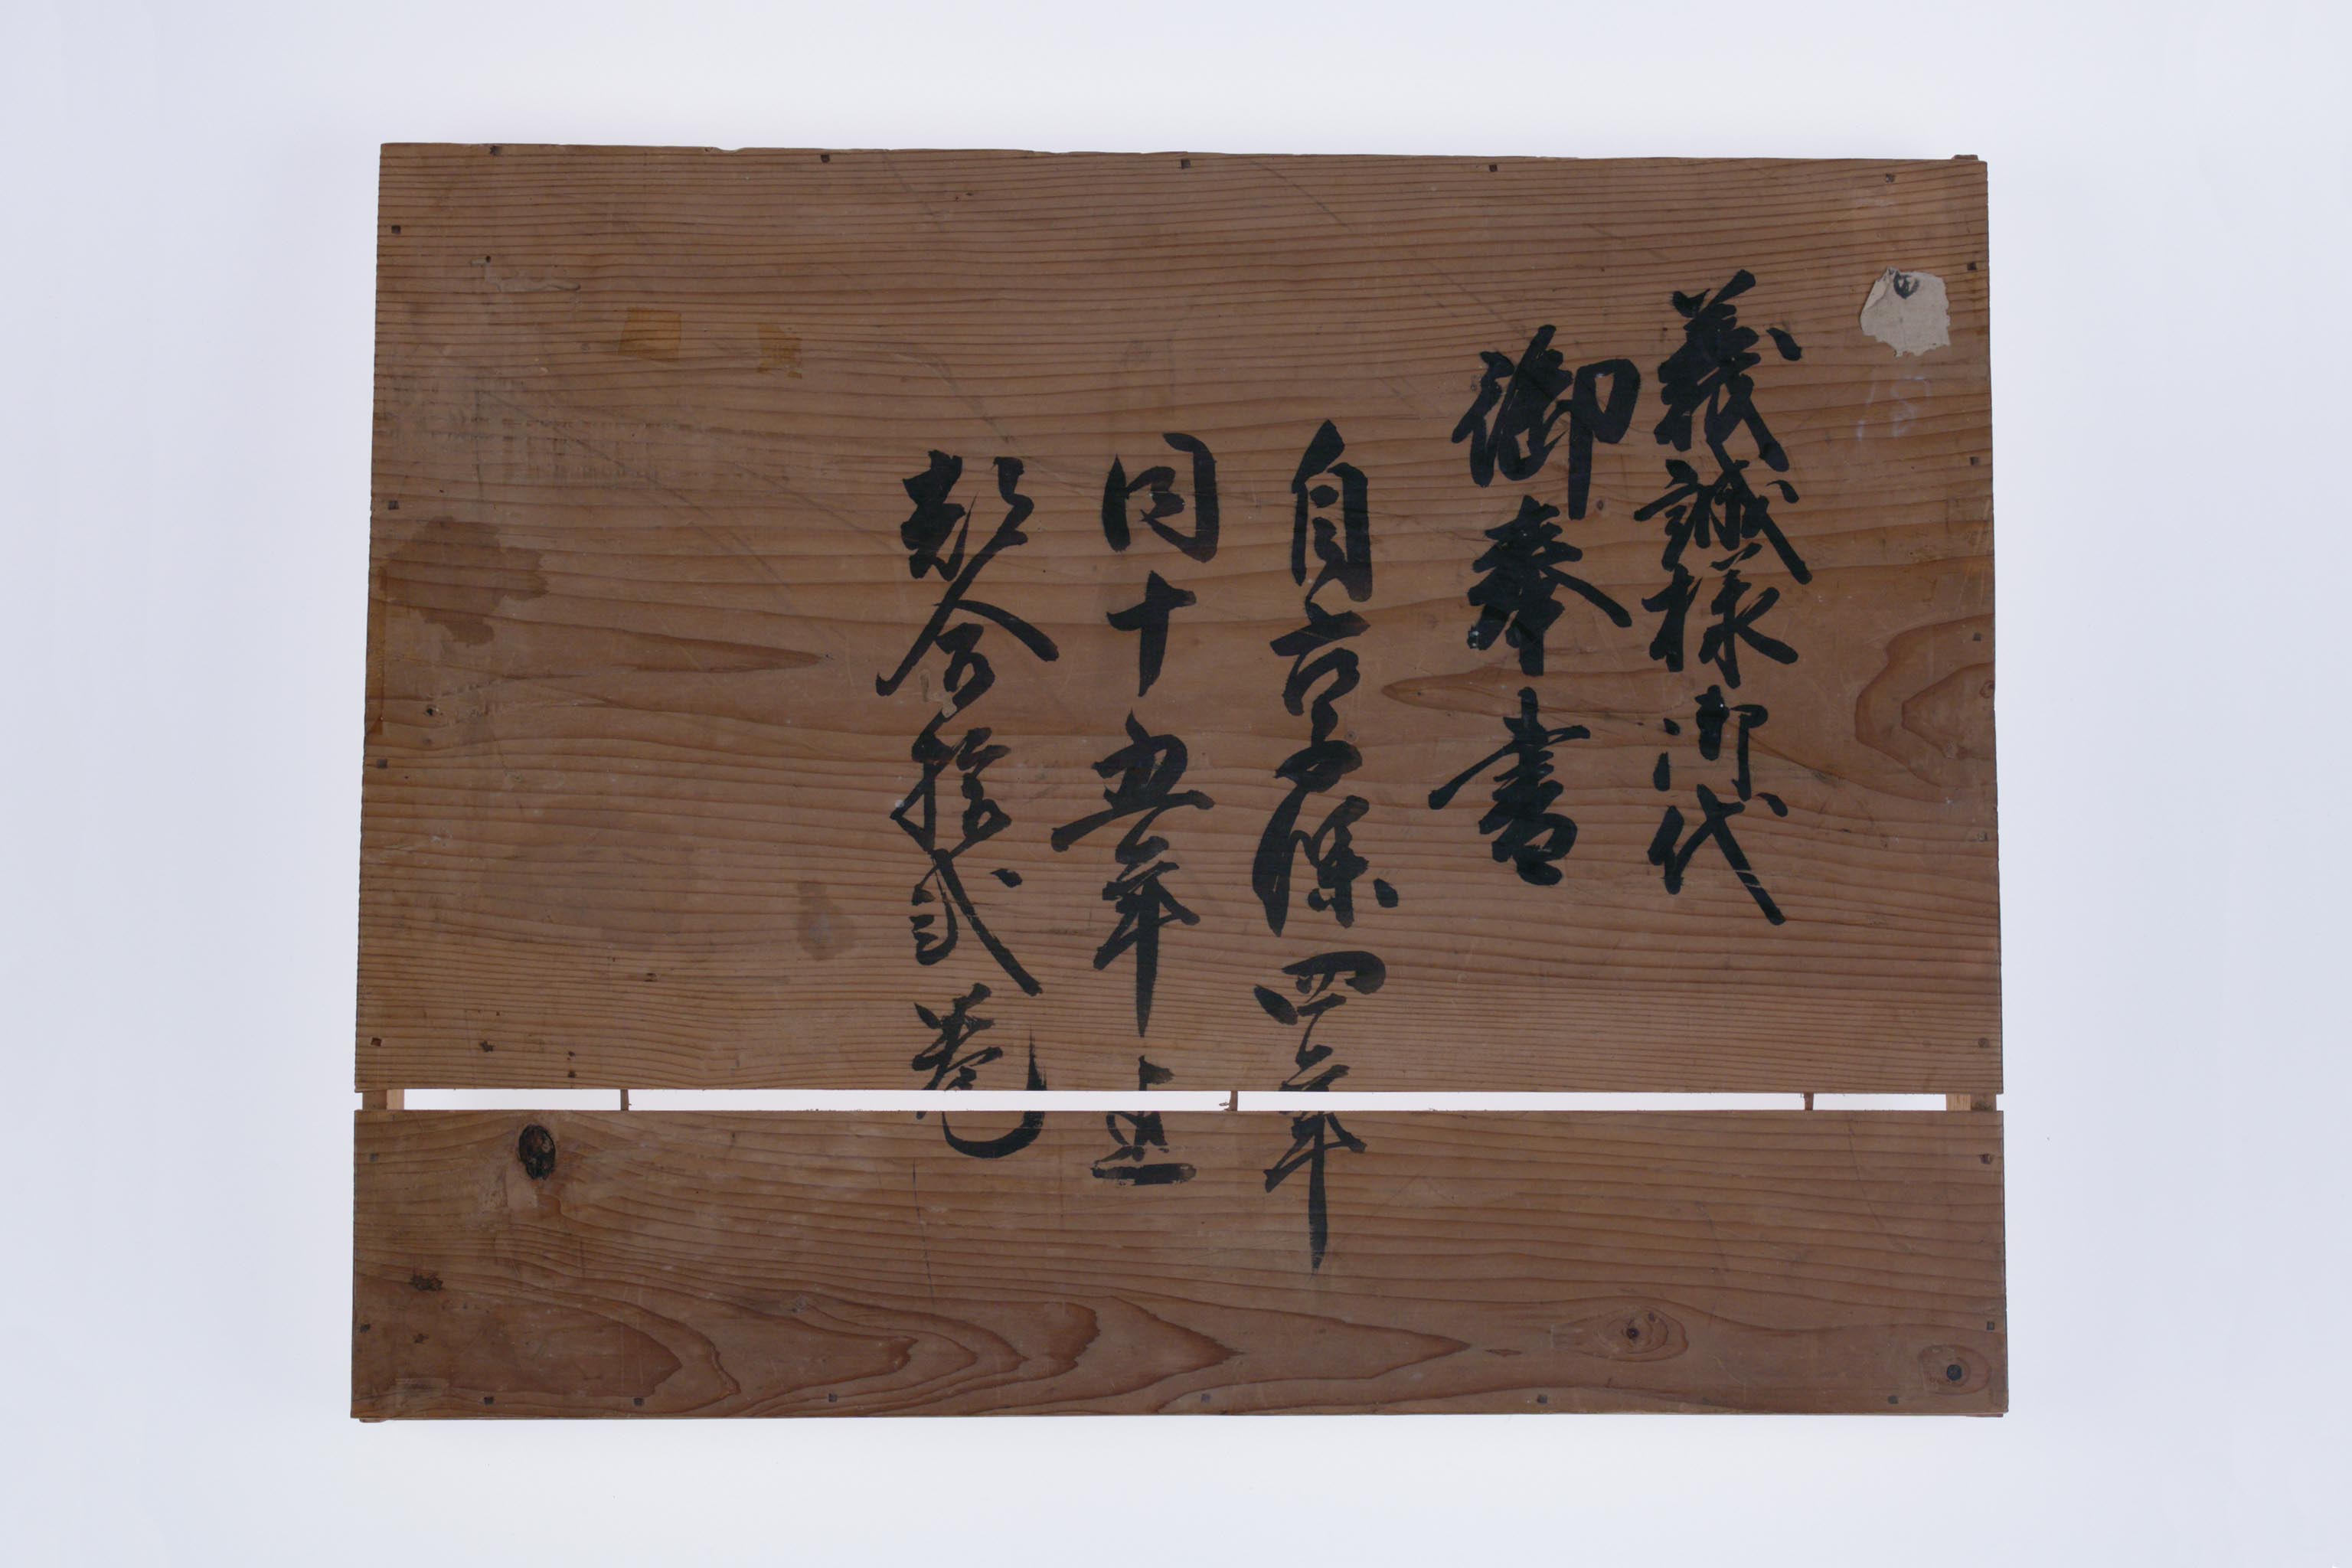 義誠様御代
御奉書
自享保四年
同十五年迄
都合拾弐巻